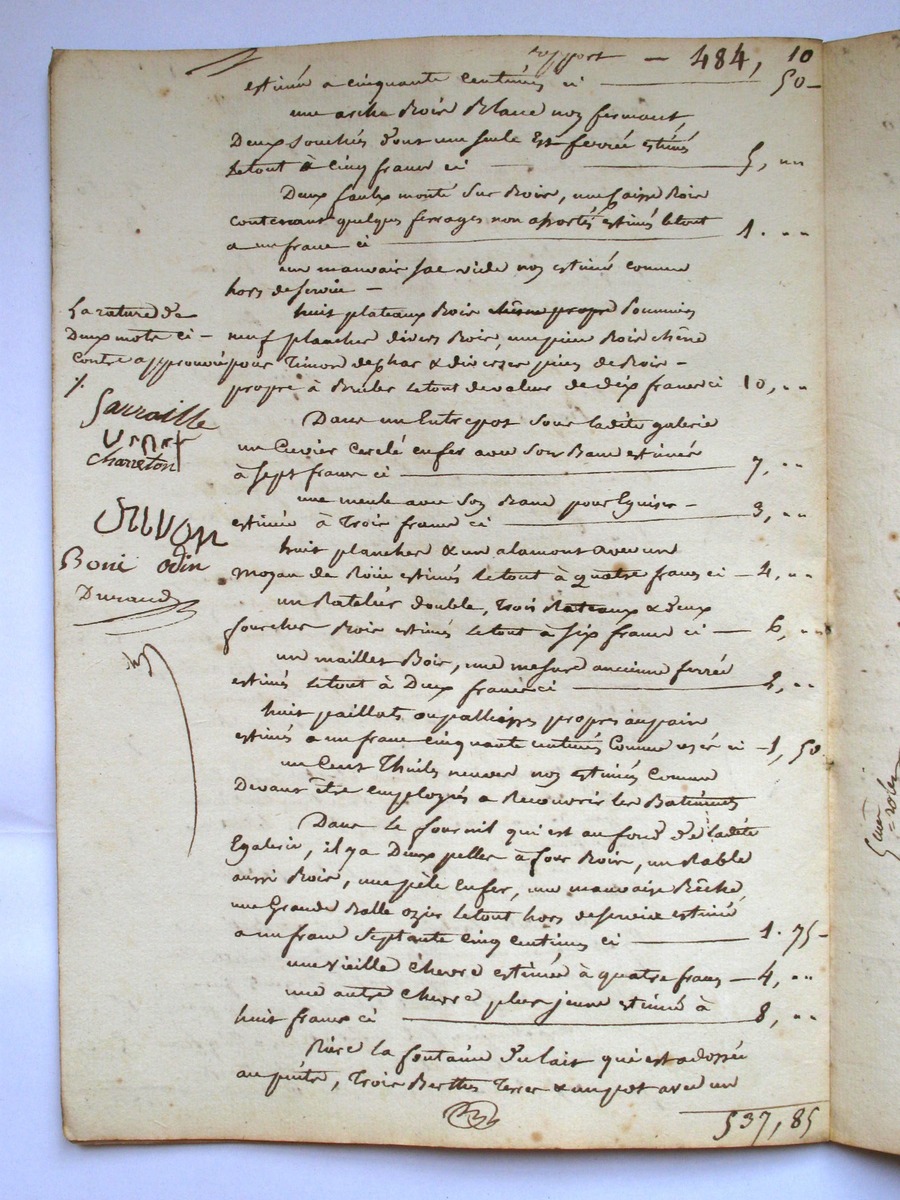 rapport — 484, 10
estimé a cinquante centimes ci — 50
une arche Boix Blanc noy fermant
Deux souches dont une seule Est ferrée estimés
Le tout à cinq franc ci — 5, "
Deux faulx monté sur Boix, une Caisse Boix
contenant quelques ferrages non estimés le tout
a un franc ci — 1. "
un mauvais sac vide noy estimé comme
hors de service —
huit plateaux Boix chêne propre
neuf plancher divers Boix, une pieu Boix chêne
pour Timon de char & diverses pieces de Boix —
propre à Bruler le tout de valeur de dix franc ci 10, "
Dans un Entrepot sous ladite galerie
un Cuvier Cerclé en fer avec son Banc estimés
à sept franc ci — 7, "
une meule avec son Banc pour Eguiser —
estimée à Trois franc ci — 3, "
huit plancher & un alamont avec un
moyau de Roüe estimés le tout à quatre franc ci — 4, "
un Ratelier double, Trois Rateaux & deux
fourches Boix estimés le tout à six franc ci — 6, "
un mailles Boix, une mesure ancienne ferrée
estimés le tout à Deux franc ci — 2, "
huit paillats ou paillasses propres au pain
estimés a un franc cinquante centimes Comme usé ci — 1, 50
un Cent Thuiles neuves noy estimés Comme
Devant être employés a Recouvrir les Batiments
Dans le fournil qui est au fond de ladite
Egalerie, il y a Deux pelles à four Boix, un Rable
aussi Boix, une pèle en fer, une mauvaise Bêche
une Grande Balle ozier le tout hors de service estimé
a un franc septante cinq centimes ci — 1. 75
une vieille chevre estimée à quatre francs — 4, "
une autre chevre plus jeune estimé à
huit franc ci — 8, "
Rière la fontaine du lait qui est adossée
au puits, Trois Berthes Terre & un pot avec un
537, 85
La rature de
Deux mots ci —
contre approuvée
Sarraille
Charreton
Boni odin
Durand